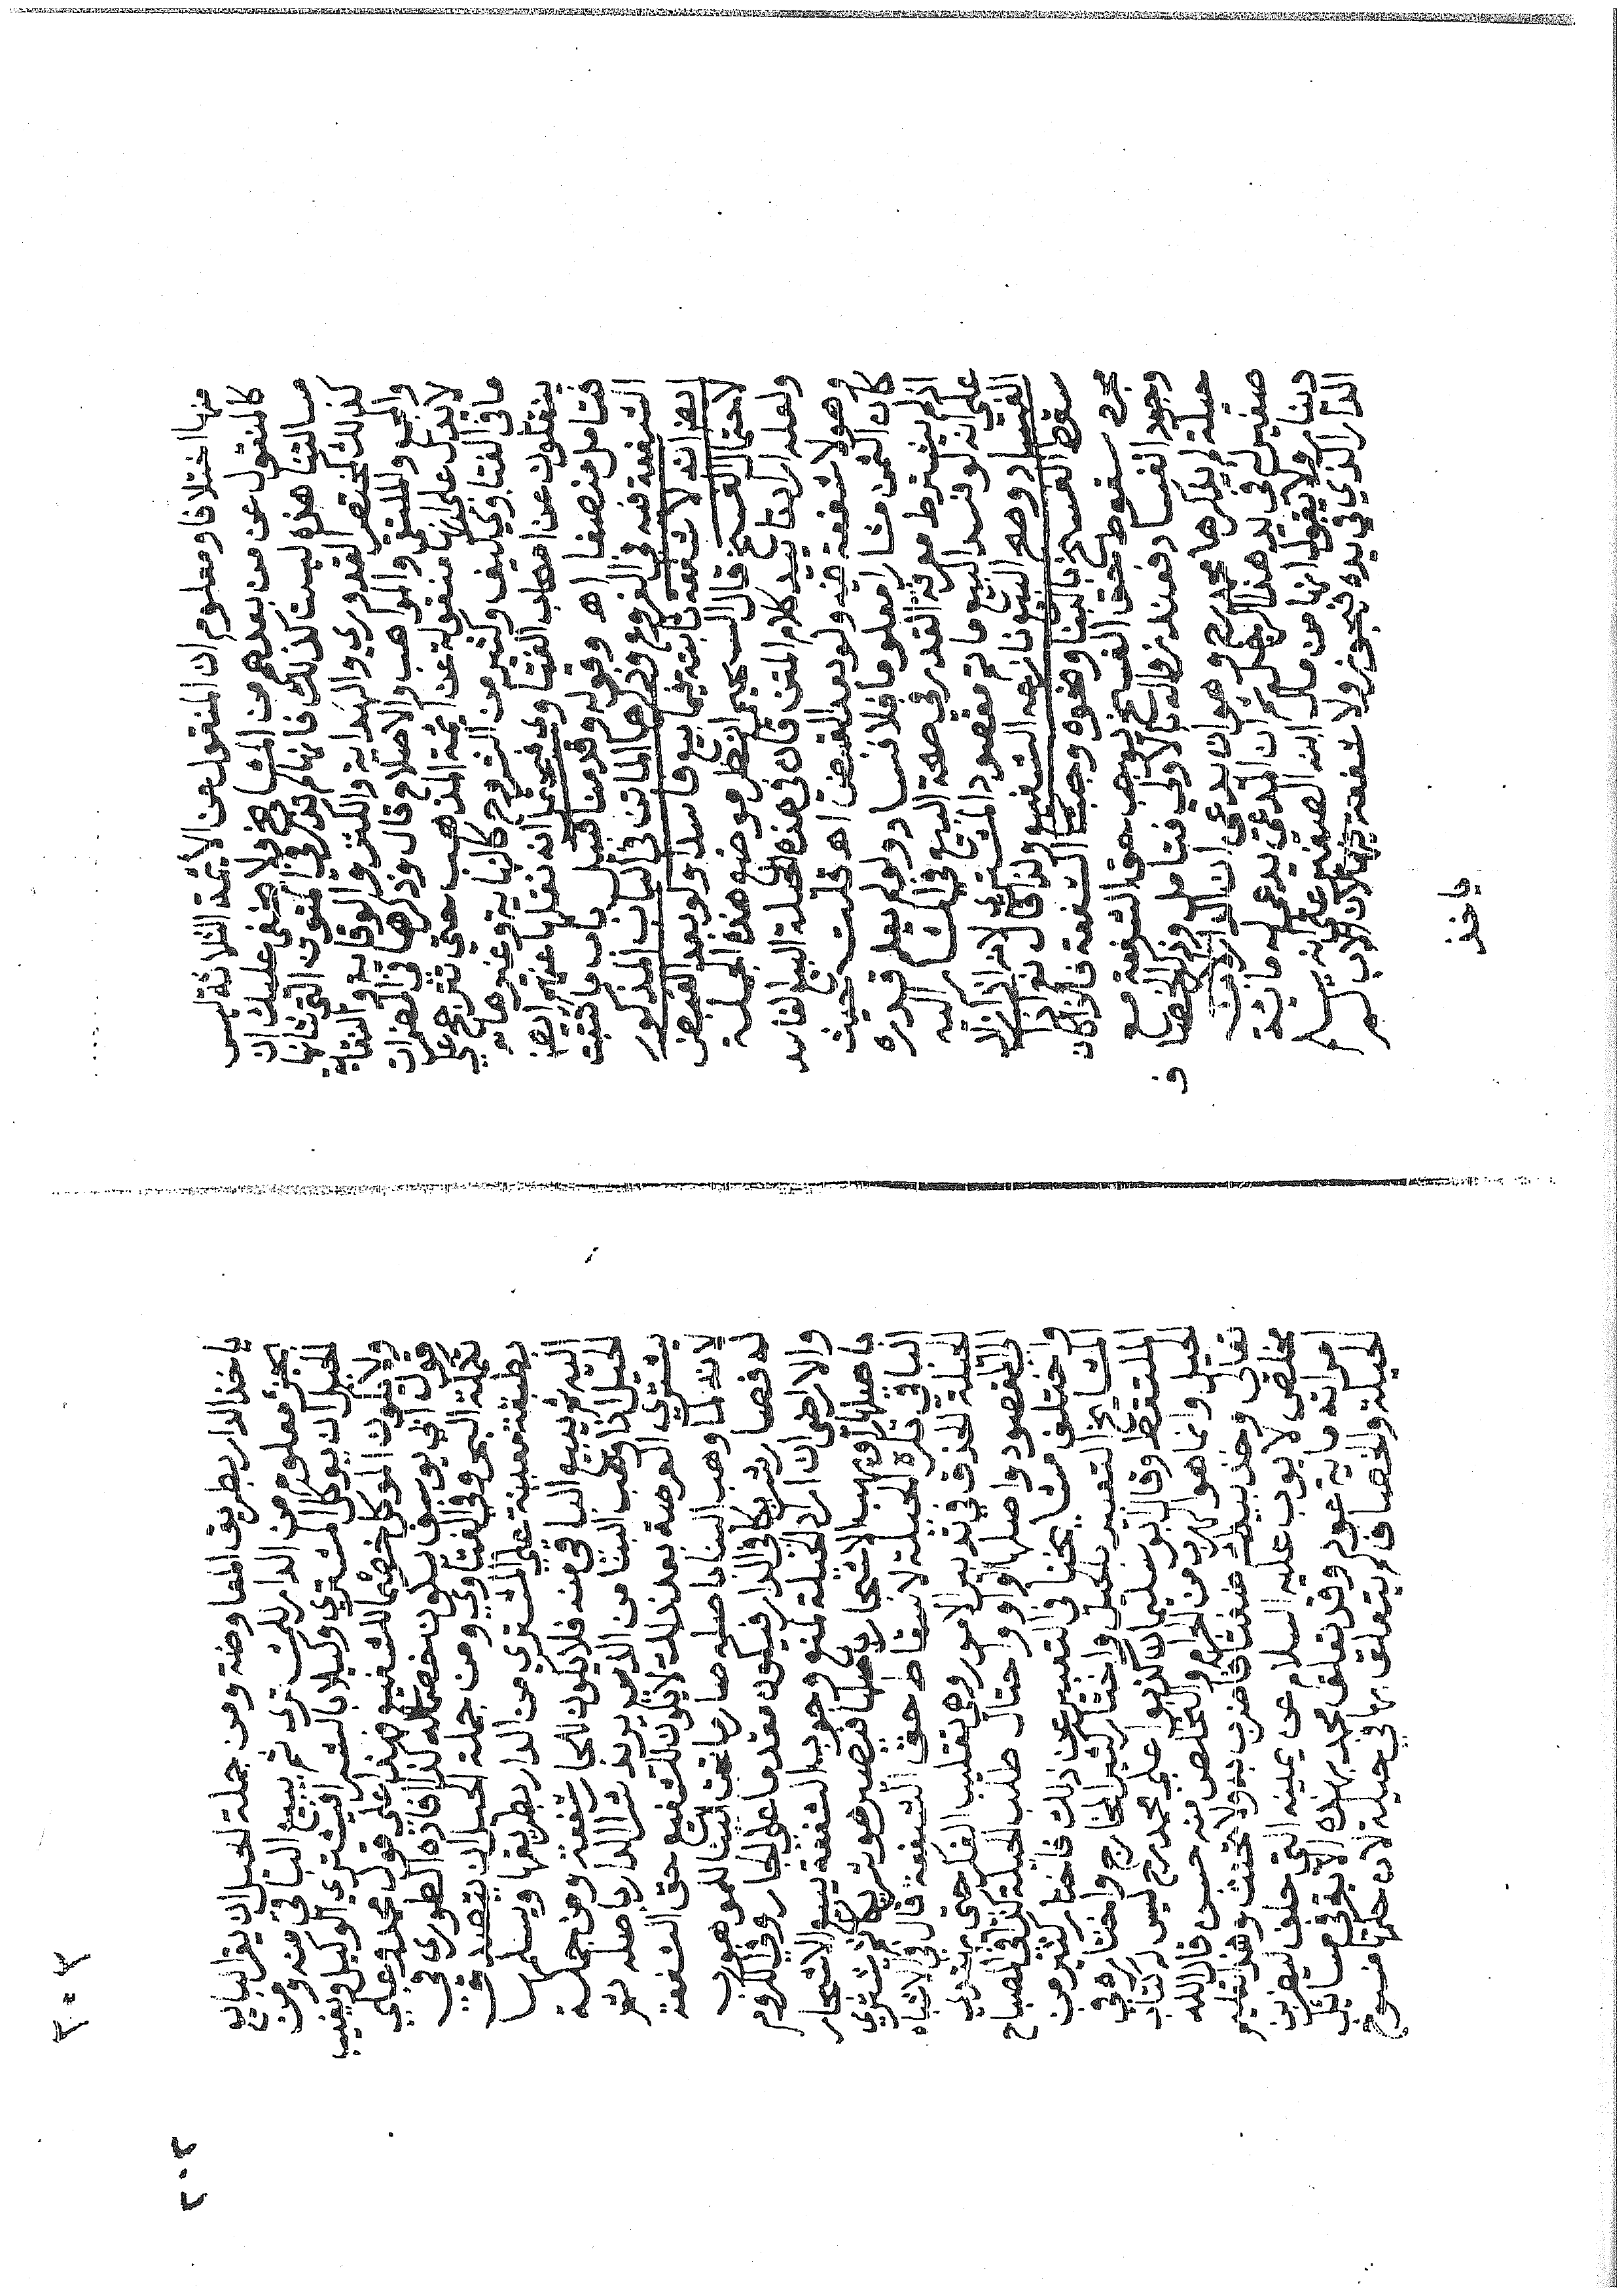 منها اختلافا ومعلوم ان المنقول عن الأئمة الثلاثة ليس
كالمنقول عن من بعدهم من المشايخ ولا يخفى عليك ان
مسالتنا هذه ليست كذلك فانها مذكورة في المتون التي شانها
كذلك كمختصر القدوري والهداية والكنز والوقاية والنقاية
والمجمع والملتقى والمواهب والاصلاح قال وذكرها في المضمرات
لا يدل على انها منقولة عن ائمة المذهب حتى تترجح على
ما في الفتاوي كيف وكثير من الشروح كالنهاية وغيرها
ينقلون عن اصحاب الفتاوى فيحتمل انه نقلها عنهم ايض
فتامل منصفا اه وقوله وقدمنا قبيل باب ما تثبت
الشفعة فيه في الفروع وذكرها الماتن في الباب المذكور
ايض انه لا شفعة ثابتة فيما بيع فاسدا ولو بعد القبض
لاحتمال الفسخ قال انظر موضع هذه الجملة
ولعله اراد تاييد كلام المتن فان في هذه الحيلة البيع الفاسد
وهو لا شفعة فيه ولو بعد القبض اه قلت حيث
كان الثمن مشارا معلوما فلا فساد ولو لم يعلم قدره
اذ لم يشترط معرفة القدر في صحة البيع في المشار اليه
على انه لو فسد البيع ما تم مقصود المشتري لانه اذا زال
الفساد وصح البيع نازعه الشفيع ولذا قال نعم اذا
سقط الفسخ بالبناء ونحوه وجبت الشفعة فاذا كان
مجرد سقوط حق الفسخ يوجب حق الشفعة مع
وجود الفساد فعند زواله بالاولى فتامل وذكر الخصاف
حيلة لم يذكرها محمد رح وهو ان يدعي ان الدار لابن
صغير لي في يد هذا الرجل ثم ان المدعي يدعي له ماية
دينار ولا يقول انها من مال ابنه الصغير على ان يسلم
الدار الذي في يده فيجوز ولا شفعة فيها لان الاب لم
ياخذ
٢٠٢
٢٠٢
ياخذ الدار بطريق المعاوضة ومن جملة الحيل ان يقر البايع
بجزء معلوم من الدار للمشتري ثم يبيع الباقي منه ومن
الحيل ان يوكل المشتري وكيلا بالشرا فيشتري الوكيل ويغيب
ولا يكون الموكل خصما للشفيع هذا على قول محمد وعلى
قول ابي يوسف يكون خصما له كذا افاده الطوري في
تكملة البحر وفي الفتاوي ومن جملة الحيل ان يتصدق
بطريقة معينة على المشتري من الدار بطريقها ويسلمها
اليه ثم يبيع الباقي منه فلا يكون للجار شفعة ومن جملة
الحيل اذا وهب البنا من الذي يريد شرا الدار باصله ثم
يشتري العرصة بعد ذلك لا يكون للشفيع حق الشفعة
لانه لما وهب البنا باصله صار ما تحت البنا للموهوب
له فصار شريكا في الدار فيكون مقدما على الجار وفي الكروم
والاراضي ان اراد الحيلة لمنع وجوب الشفعة يبيع الاشجار
باصلها او يهب الاشجار باصلها فيصير هو شريكا ثم يشتري
الباقي تكره الحيلة لاسقاط حق الشفعة قال في الاشباه
الحيلة الحذق في تدبير الامور وهي تقليب الفكر حتى يهتدي
الى المقصود واصلها الواو واحتال طلب الحيلة كذا في المصباح
واختلف مشايخنا في التعبير عن ذلك فاختار كثير من
المشايخ التعبير بالحيل واختار كثير المخارج واختاره في
الملتقط وقال ابو سليمان كذبوا على محمد رح ليس له كتاب
الحيل وانما هو الهرب من الحرام والتخلص منه حسن قال الله
تعالى وخذ بيدك ضغثا فاضرب به ولا تحنث وهذا تعليم
مخلص لايوب عليه السلام عن يمينه التي حلف ليضربن
امراته ماية عود وقد تعلق محمد بهذه الاية في مسائل
الحيلة والخصاف لم يتعلق بها في حيلة لان حكمها منسوخ